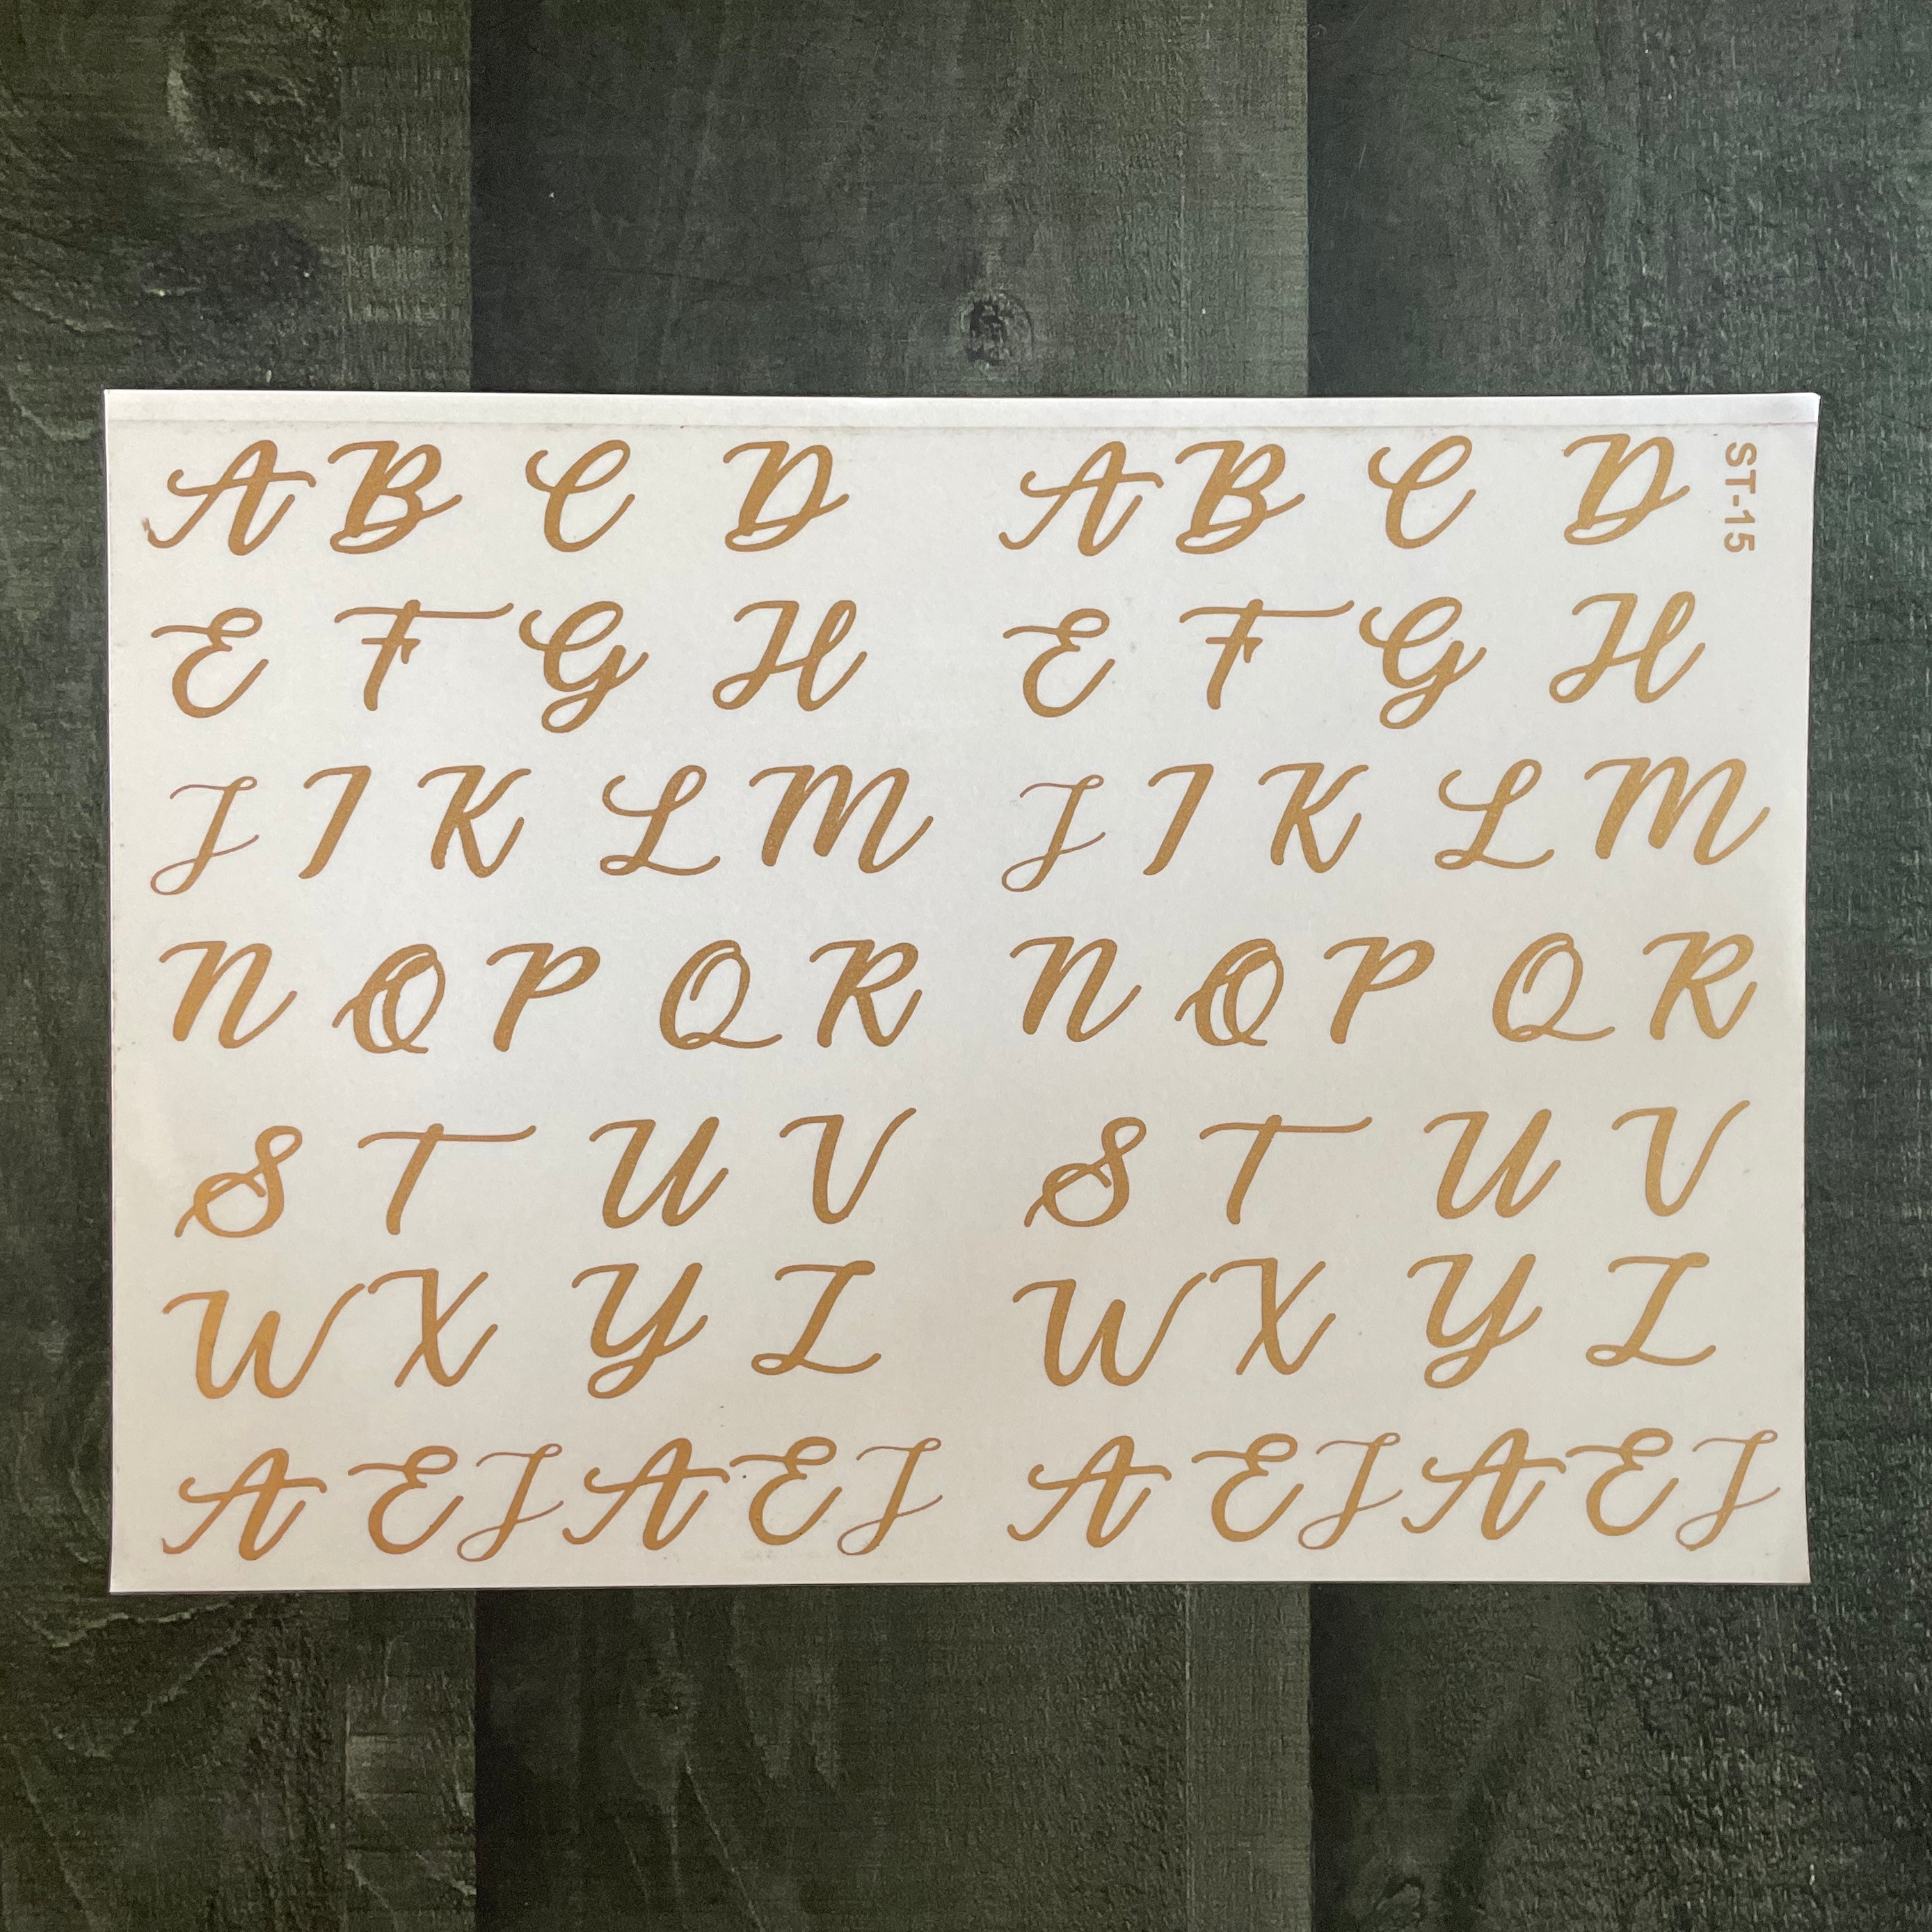 A B C D A B C D
E F G H E F G H
J I K L M J I K L M
N O P Q R N O P Q R
S T U V S T U V
W X Y Z W X Y Z
A E J A E J A E J A E J
ST-15